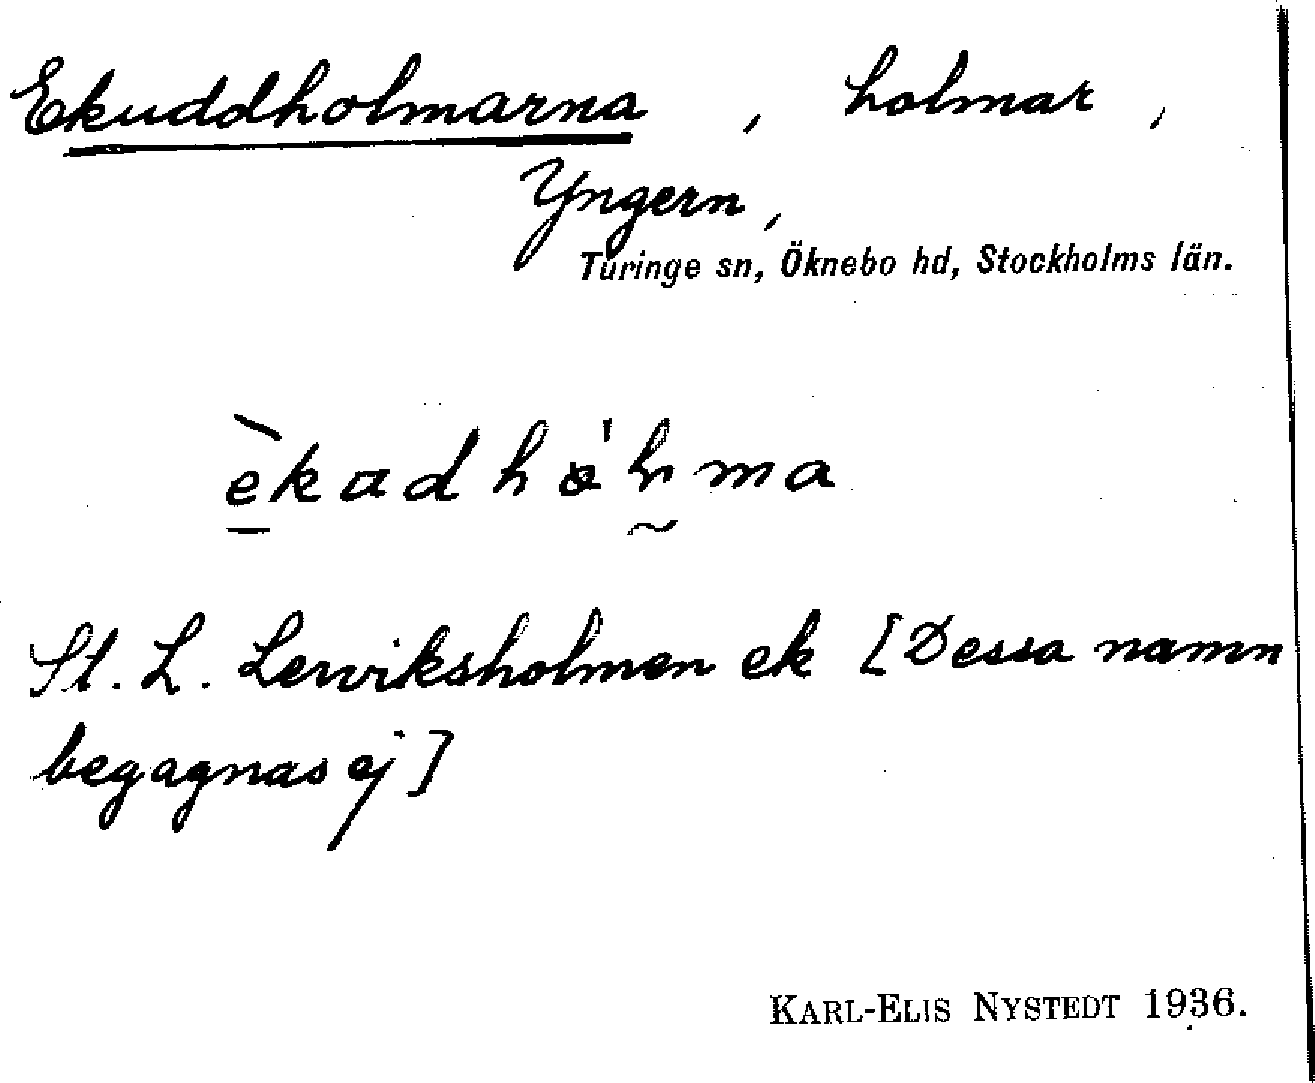 Ekuddholmarna, holmar,
Yngern,
Turinge sn, Öknebo hd, Stockholms län.
St. L. Lerviksholmen ek [Dessa namn
begagnas ej]
KARL-ELIS NYSTEDT 1936.